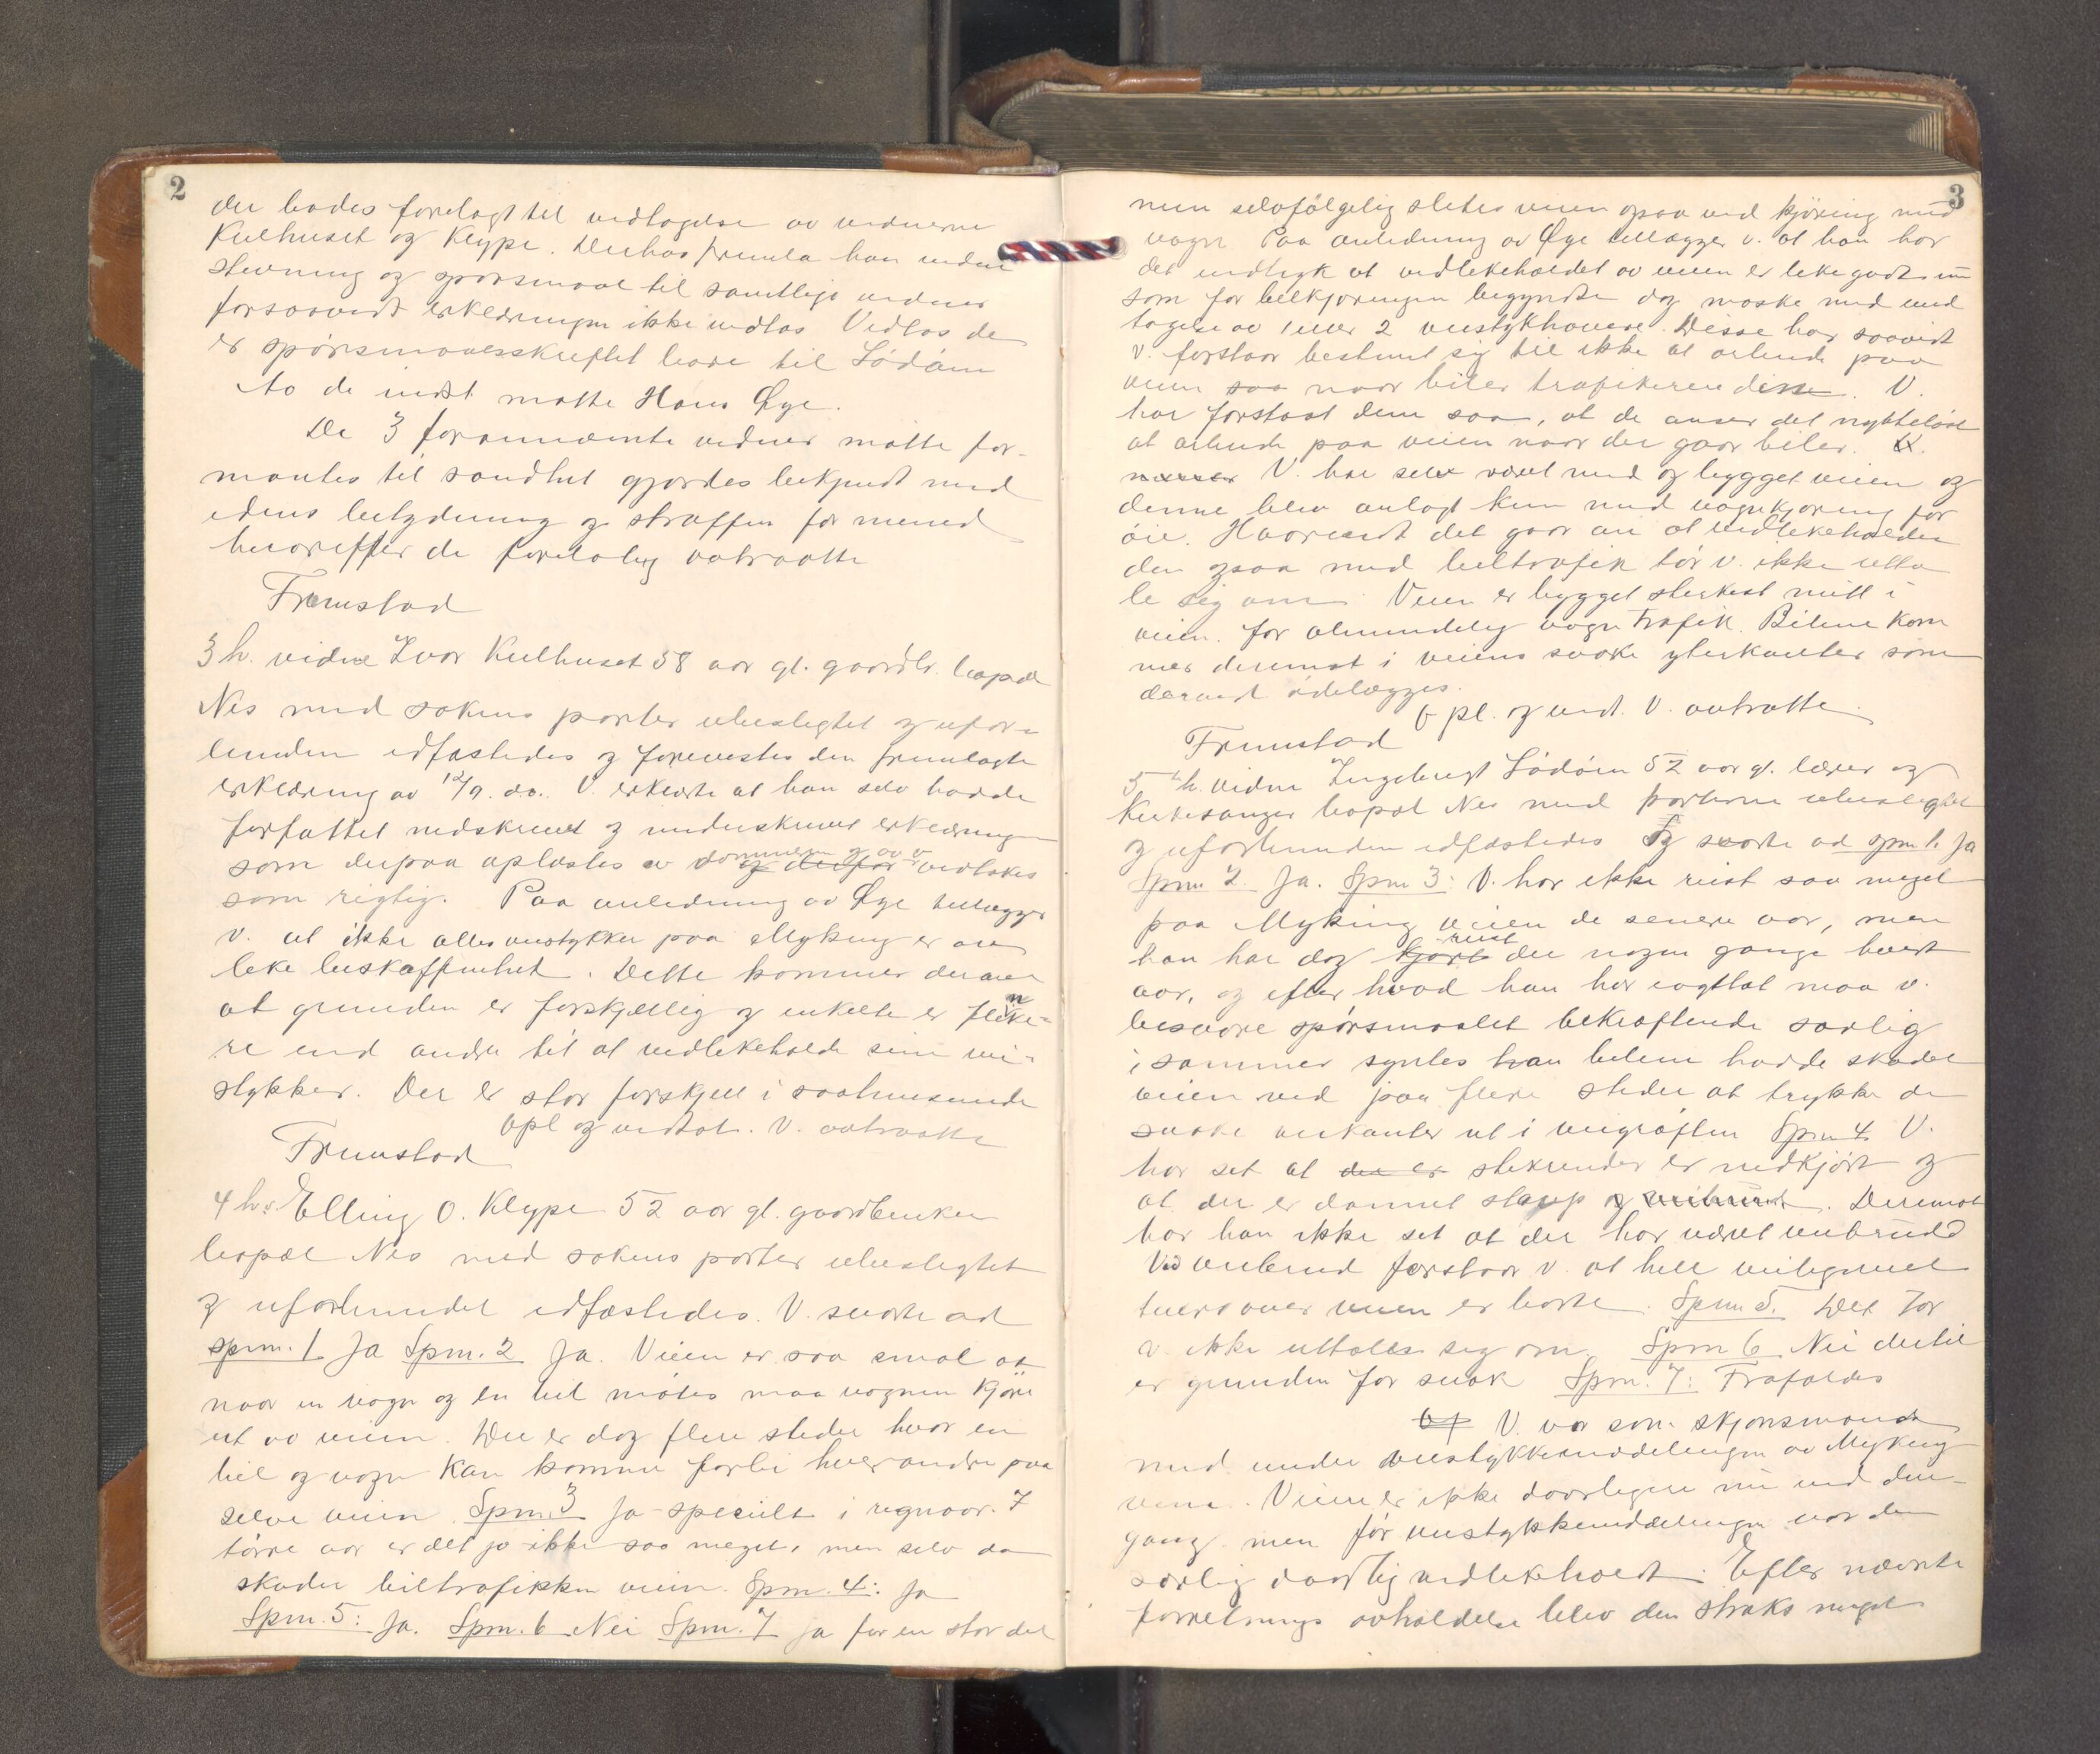 2
der bades forelagt til vedtagelse av vidnerne
Kulhuset og Klype. Derhos fremla han vidne
stevning og spørsmaal til samtlige vidner
forsaavidt erklæringen ikke vedtas. Vedtas de
er spørsmaalsskriftet bare til Lødøen
Av de inst. møtte Hans Øye.
De 3 forannævnte vidner møtte for-
mantes til sandhet gjordes bekjendt med
edens betydning og straffen for mened
hvorefter de foreløbig avtraatte
Fremstad
3 h. vidne Ivar Kulhuset 58 aar gl. gaardbr. bopæl
Nes med sakens parter ubeslegtet og ufor-
bunden edfæstedes og forevistes den fremlagte
erklæring av 12/9. ds. V. erklærte at han selv hadde
forfattet nedskrevet og underskrevet erklæringen
som derpaa oplæstes av dommeren og av v. vedtokes
som rigtig. Paa anledning av Øye tillægger
v. at ikke alle veistykker paa Myking er av
like beskaffenhet. Dette kommer derav
at grunden er forskjellig og enkelte er flinke-
re end andre til at vedlikeholde sine vei-
stykker. Der er stor forskjell i saahenseende
Opl og vedtat. V. avtraatte
Fremstad
4 h. Elling O. Klype 52 aar gl. gaardbruker
bopæl Nes med sakens parter ubeslegtet
og uforbundet edfæstedes. V. svarte ad
spm. 1 Ja Spm. 2 Ja. Veien er saa smal at
naar en vogn og en bil møtes maa vognen kjøre
ut av veien. Der er dog flere steder hvor en
bil og vogn kan komme forbi hverandre paa
selve veien. Spm. 3 Ja specielt i regnaar. I
tørre aar er det jo ikke saa meget, men selv da
skader biltrafikken veien. Spm. 4: Ja
Spm. 5: Ja. Spm. 6 Nei Spm. 7 Ja for en stor del
3
men selvfølgelig slites veien ogsaa ved kjøring med
vogn. Paa anledning av Øye tillægger v. at han har
det indtryk at vedlikeholdet av veien er like godt nu
som før bilkjøringen begyndte dog maske med und
tagelse av 1 eller 2 veistykhavere. Disse har saavidt
v. forstaar bestemt sig til ikke at arbeide paa
veien saa naar biler trafikerer disse. V.
har forstaat dem saa, at de anser det nytteløst
at arbeide paa veien naar der gaar biler.
V. har selv været med og bygget veien og
denne blev anlagt kun med vognkjøring for
øie. Hvorvidt det gaar an at vedlikeholde
den ogsaa med biltrafik tør v. ikke utta
le sig om. Veien er bygget sterkest midt i
veien. for almindelig vogn trafik. Bilene kom
mer derimot i veiens svake yterkanter som
derved ødelægges.
Opl. og vedt. V. avtraatte
Fremstad
5 h. vidne Ingebrigt Lødøen 52 aar gl. lærer og
Kirkesanger bopæl Nes med parterne ubeslegtet
og uforbunden edfæstedes Og svarte ad spm 1. Ja
Spm 2. Ja. Spm 3: V. har ikke reist saa meget
paa Myking veien de senere aar, men
han har dog kjørt reist der nogen gange hvert
aar, og efter hvad han har iagttat maa v.
besvare spørsmaalet bekræftende særlig
i sommer syntes han bilene hadde skadet
veien ved paa flere steder at trykke de
svake veikanter ut i veigrøften Spm 4 V.
har set at der er stikrender er nedkjørt og
at der er dannet slapp og veibrudt. Derimot
har han ikke set at der har været veibrudd
Ved veibrud forstaar v. at hele veilegemet
tvers over veien er borte. Spm 5. Det tør
v. ikke uttale sig om. Spm 6 Nei dertil
er grunden for svak Spm. 7: Frafaldes
V. var som skjønsmand
med under veistykkeinddelingen av Myking
veien. Veien er ikke daarligere nu end den-
gang. men før veistykkeinddelingen var den
særlig daarlig vedlikeholdt. Efter nævnte
forretnings avholdelse blev den straks meget